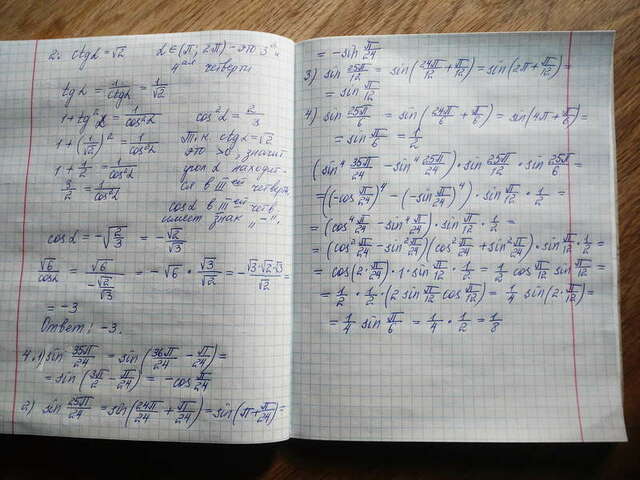 2. ctgα = √2   α ∈ (π; 2π) - это 3ая и
4ая четверти
tgα = 1/ctgα = 1/√2
1 + tg²α = 1/cos²α   cos²α = 2/3
1 + (1/√2)² = 1/cos²α   Т.к. ctgα = √2
это >0, значит
1 + 1/2 = 1/cos²α   угол α находит-
3/2 = 1/cos²α   ся в III ей четверти
cosα в III ей четв.
имеет знак „-".
cosα = -√(2/3) = -√2/√3
√6/cosα = √6/(-√2/√3) = -√6 · √3/√2 = -√3·√2·√3/√2
= -3
Ответ: -3.
4. 1) sin 35π/24 = sin(36π/24 - π/24) =
= sin(3π/2 - π/24) = -cos π/24
2) sin 25π/24 = sin(24π/24 + π/24) = sin(π + π/24) =
= -sin π/24
3) sin 25π/12 = sin(24π/12 + π/12) = sin(2π + π/12) =
= sin π/12
4) sin 25π/6 = sin(24π/6 + π/6) = sin(4π + π/6) =
= sin π/6 = 1/2
(sin⁴ 35π/24 - sin⁴ 25π/24) · sin 25π/12 · sin 25π/6 =
= ((-cos π/24)⁴ - (-sin π/24)⁴) · sin π/12 · 1/2 =
= (cos⁴ π/24 - sin⁴ π/24) · sin π/12 · 1/2 =
= (cos² π/24 - sin² π/24)(cos² π/24 + sin² π/24) · sin π/12 · 1/2 =
= cos(2 · π/24) · 1 · sin π/12 · 1/2 = 1/2 cos π/12 sin π/12 =
= 1/2 · 1/2 · (2 sin π/12 cos π/12) = 1/4 sin(2 · π/12) =
= 1/4 sin π/6 = 1/4 · 1/2 = 1/8